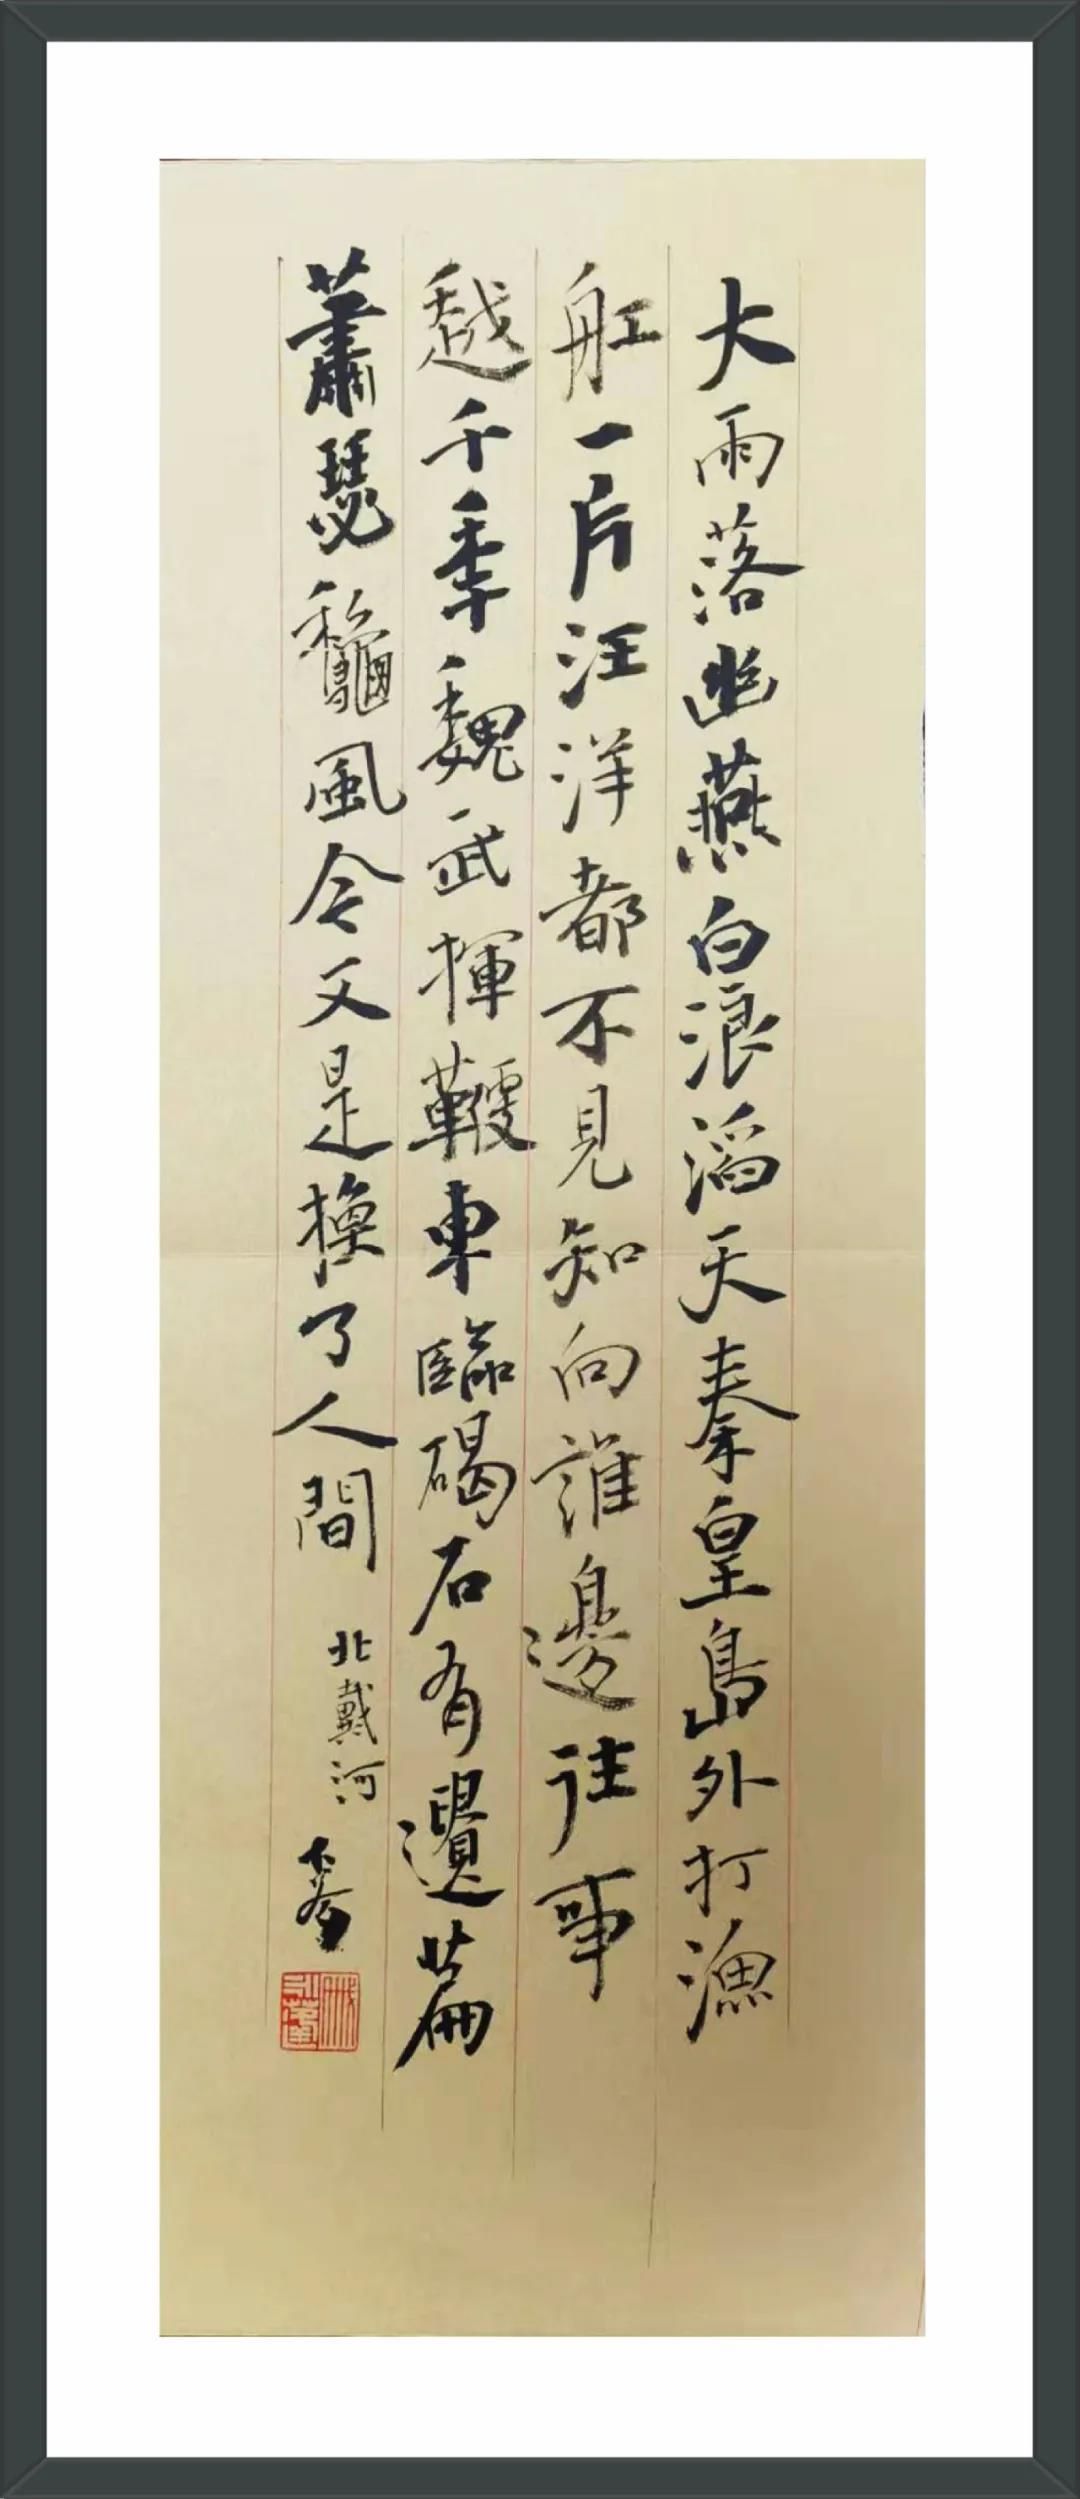 大雨落幽燕白浪滔天秦皇島外打漁
舡一片汪洋都不見知向誰邊往事
越千秊魏武揮鞭東臨碣石有遺篇
蕭瑟龝風今又是換了人間
北戴河